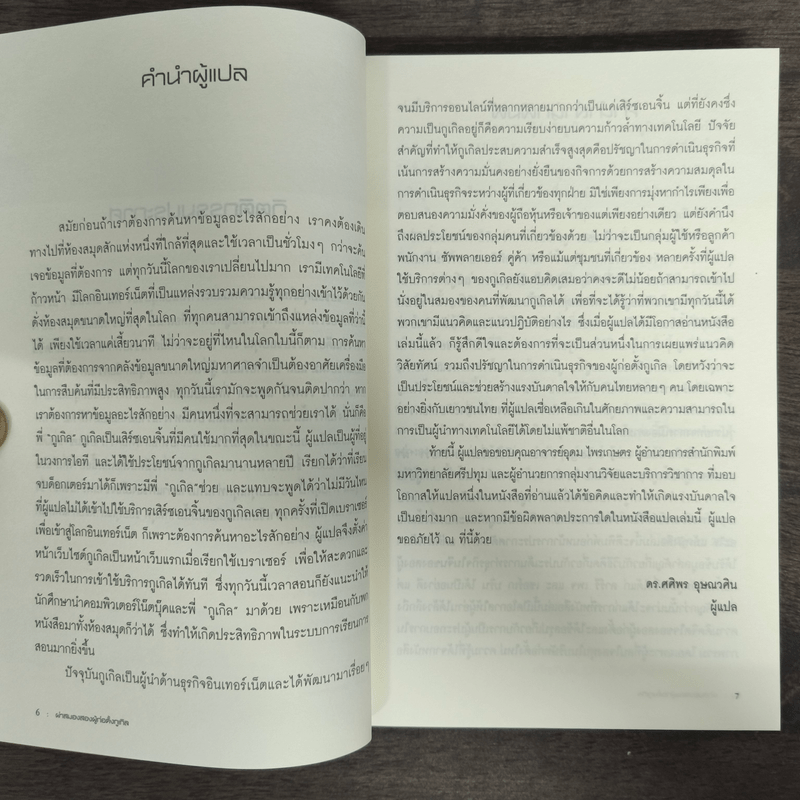 คำนำผู้แปล
สมัยก่อนถ้าเราต้องการค้นหาข้อมูลอะไรสักอย่าง เราคงต้องเดิน
ทางไปที่ห้องสมุดสักแห่งหนึ่งที่ใกล้ที่สุดและใช้เวลาเป็นชั่วโมงๆ กว่าจะค้น
เจอข้อมูลที่ต้องการ แต่ทุกวันนี้โลกของเราเปลี่ยนไปมาก เรามีเทคโนโลยีที่
ก้าวหน้า มีโลกอินเทอร์เน็ตที่เป็นแหล่งรวบรวมความรู้ทุกอย่างเข้าไว้ด้วยกัน
ดั่งห้องสมุดขนาดใหญ่ที่สุดในโลก ที่ทุกคนสามารถเข้าถึงแหล่งข้อมูลที่ว่านี้
ได้ เพียงใช้เวลาแค่เสี้ยวนาที ไม่ว่าจะอยู่ที่ไหนในโลกใบนี้ก็ตาม การค้นหา
ข้อมูลที่ต้องการจากคลังข้อมูลขนาดใหญ่มหาศาลจำเป็นต้องอาศัยเครื่องมือ
ในการสืบค้นที่มีประสิทธิภาพสูง ทุกวันนี้เรามักจะพูดกันจนติดปากว่า หาก
เราต้องการหาข้อมูลอะไรสักอย่าง มีคนหนึ่งที่จะสามารถช่วยเราได้ นั่นก็คือ
พี่ "กูเกิล" กูเกิลเป็นเสิร์ชเอนจิ้นที่มีคนใช้มากที่สุดในขณะนี้ ผู้แปลเป็นผู้ที่อยู่
ในวงการไอที และได้ใช้ประโยชน์จากกูเกิลมานานหลายปี เรียกได้ว่าที่เรียน
จบด็อกเตอร์มาได้ก็เพราะมีพี่ "กูเกิล" ช่วย และแทบจะพูดได้ว่าไม่มีวันไหน
ที่ผู้แปลไม่ได้เข้าไปใช้บริการเสิร์ชเอนจิ้นของกูเกิลเลย ทุกครั้งที่เปิดเบราเซอร์
เพื่อเข้าสู่โลกอินเทอร์เน็ต ก็เพราะต้องการค้นหาอะไรสักอย่าง ผู้แปลจึงตั้งค่า
หน้าเว็บไซต์กูเกิลเป็นหน้าเว็บแรกเมื่อเรียกใช้เบราเซอร์ เพื่อให้สะดวกและ
รวดเร็วในการเข้าใช้บริการกูเกิลได้ทันที ซึ่งทุกวันนี้เวลาสอนก็ยังแนะนำให้
นักศึกษานำคอมพิวเตอร์โน้ตบุ๊คและพี่ "กูเกิล" มาด้วย เพราะเหมือนกับพก
หนังสือมาทั้งห้องสมุดก็ว่าได้ ซึ่งทำให้เกิดประสิทธิภาพในระบบการเรียนการ
สอนมากยิ่งขึ้น
ปัจจุบันกูเกิลเป็นผู้นำด้านธุรกิจอินเทอร์เน็ตและได้พัฒนามาเรื่อยๆ
6 : ผ่าสมองสองผู้ก่อตั้งกูเกิล
จนมีบริการออนไลน์ที่หลากหลายมากกว่าเป็นแค่เสิร์ซเอนจิ้น แต่ที่ยังคงซึ่ง
ความเป็นกูเกิลอยู่ก็คือความเรียบง่ายบนความก้าวล้ำทางเทคโนโลยี ปัจจัย
สำคัญที่ทำให้กูเกิลประสบความสำเร็จสูงสุดคือปรัชญาในการดำเนินธุรกิจที่
เน้นการสร้างความมั่นคงอย่างยั่งยืนของกิจการด้วยการสร้างความสมดุลใน
การดำเนินธุรกิจระหว่างผู้ที่เกี่ยวข้องทุกฝ่าย มิใช่เพียงการมุ่งหากำไรเพียงเพื่อ
ตอบสนองความมั่งคั่งของผู้ถือหุ้นหรือเจ้าของแต่เพียงอย่างเดียว แต่ยังคำนึง
ถึงผลประโยชน์ของกลุ่มคนที่เกี่ยวข้องด้วย ไม่ว่าจะเป็นกลุ่มผู้ใช้หรือลูกค้า
พนักงาน ซัพพลายเออร์ คู่ค้า หรือแม้แต่ชุมชนที่เกี่ยวข้อง หลายครั้งที่ผู้แปล
ใช้บริการต่างๆ ของกูเกิลยังแอบคิดเสมอว่าคงจะดีไม่น้อยถ้าสามารถเข้าไป
นั่งอยู่ในสมองของคนที่พัฒนากูเกิลได้ เพื่อที่จะได้รู้ว่าที่พวกเขามีทุกวันนี้ได้
พวกเขามีแนวคิดและแนวปฏิบัติอย่างไร ซึ่งเมื่อผู้แปลได้มีโอกาสอ่านหนังสือ
เล่มนี้แล้ว ก็รู้สึกดีใจและต้องการที่จะเป็นส่วนหนึ่งในการเผยแพร่แนวคิด
วิสัยทัศน์ รวมถึงปรัชญาในการดำเนินธุรกิจของผู้ก่อตั้งกูเกิล โดยหวังว่าจะ
เป็นประโยชน์และช่วยสร้างแรงบันดาลใจให้กับคนไทยหลายๆ คน โดยเฉพาะ
อย่างยิ่งกับเยาวชนไทย ที่ผู้แปลเชื่อเหลือเกินในศักยภาพและความสามารถใน
การเป็นผู้นำทางเทคโนโลยีได้โดยไม่แพ้ชาติอื่นในโลก
ท้ายนี้ ผู้แปลขอขอบคุณอาจารย์อุดม ไพรเกษตร ผู้อำนวยการสำนักพิมพ์
มหาวิทยาลัยศรีปทุม และผู้อำนวยการกลุ่มงานวิจัยและบริการวิชาการ ที่มอบ
โอกาสให้แปลหนึ่งในหนังสือที่อ่านแล้วได้ข้อคิดและทำให้เกิดแรงบันดาลใจ
เป็นอย่างมาก และหากมีข้อผิดพลาดประการใดในหนังสือแปลเล่มนี้ ผู้แปล
ขออภัยไว้ ณ ที่นี้ด้วย
ดร.ศศิพร อุษณวศิน
ผู้แปล